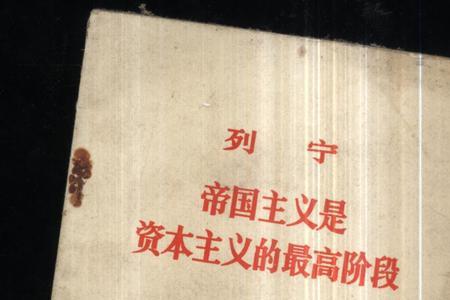 列 宁
帝国主义是
资本主义的最高阶段